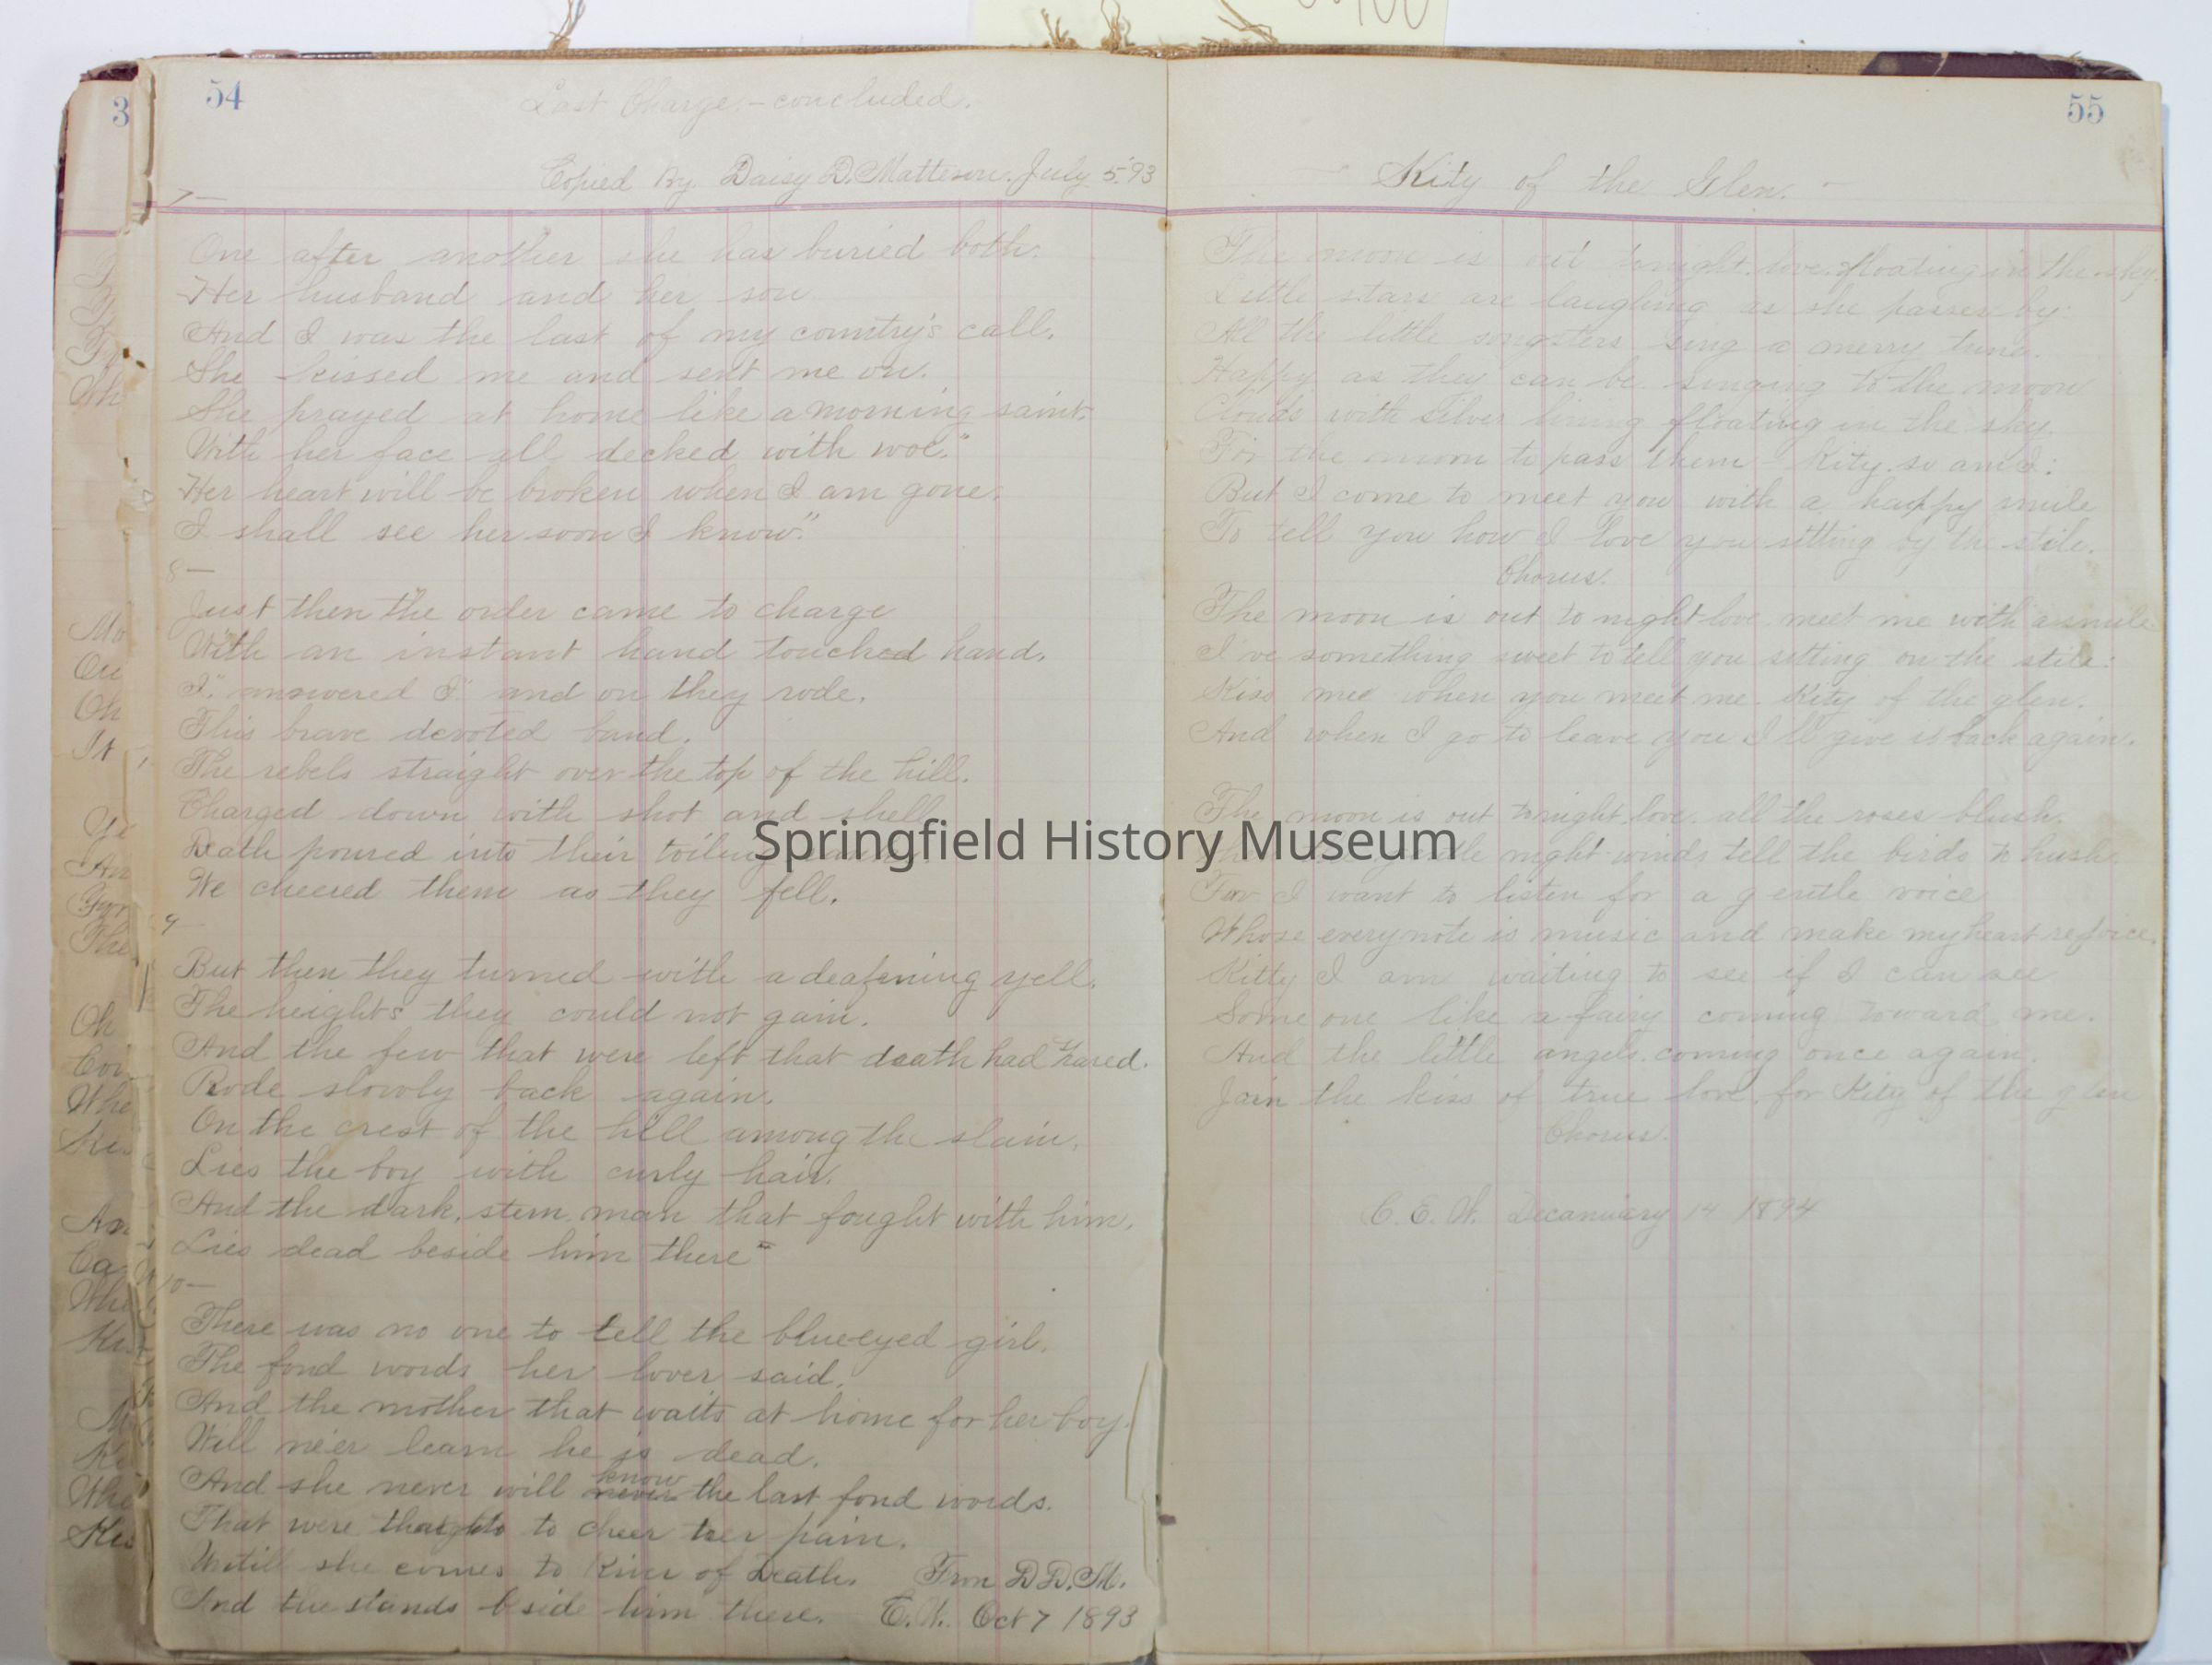 54
Last Charge.- concluded.
Copied By Daisy D. Matteson. July 5, 93
7—
One after another she has buried both.
Her husband and her son
And I was the last of my country's call.
She kissed me and sent me on.
She prayed at home like a morning saint.
With her face all decked with woe."
Her heart will be broken when I am gone.
I shall see her soon I know."
8—
Just then the order came to charge
With an instant hand touched hand.
I." answered I." and on they rode.
This brave devoted band.
The rebels straight over the top of the hill.
Charged down with shot and shell
Death poured into their toiling
We cheered them as they fell.
9—
But then they turned with a deafening yell.
The heights they could not gain.
And the few that were left that death had
Rode slowly back again.
On the crest of the hill among the slain.
Lies the boy with curly hair.
And the dark, stern man that fought with him.
Lies dead beside him there"
10—
There was no one to tell the blue eyed girl.
The fond words her lover said.
And the mother that waits at home for her boy.
Will neer learn he is dead.
know
And she never will never the last fond words.
That were thoughts to cheer her pain.
Untill she comes to River of Death. From D.D.M.
And stands beside him there. C.W. Oct 7 1893
55
" Kity of the Glen. -
The moon is out tonight, love, floating in the sky.
Little stars are laughing as she passes by.
All the little songsters sing a merry tune.
Happy as they can be singing to the moon
Clouds with silver lining floating in the sky.
For the moon to pass them - Kity so am I:
But I come to meet you with a happy smile
To tell you how I love you sitting by the stile.
Chorus.
The moon is out to night love meet me with a smile
I've something sweet to tell you setting on the stile:
Kiss me when you meet me Kity of the glen.
And when I go to leave you I'll give is back again.
The moon is out tonight, love, all the roses blush.
night winds tell the birds to hush
For I want to listen for a gentle voice
Whose every note is music and make my heart rejoice.
Kitty I am waiting to see if I can see
Some one like a fairy coming toward me.
And the little angels coming once again.
Join the kiss of true love, for Kity of the glen
Chorus.
C. E. W. 14 1894
3
Springfield History Museum